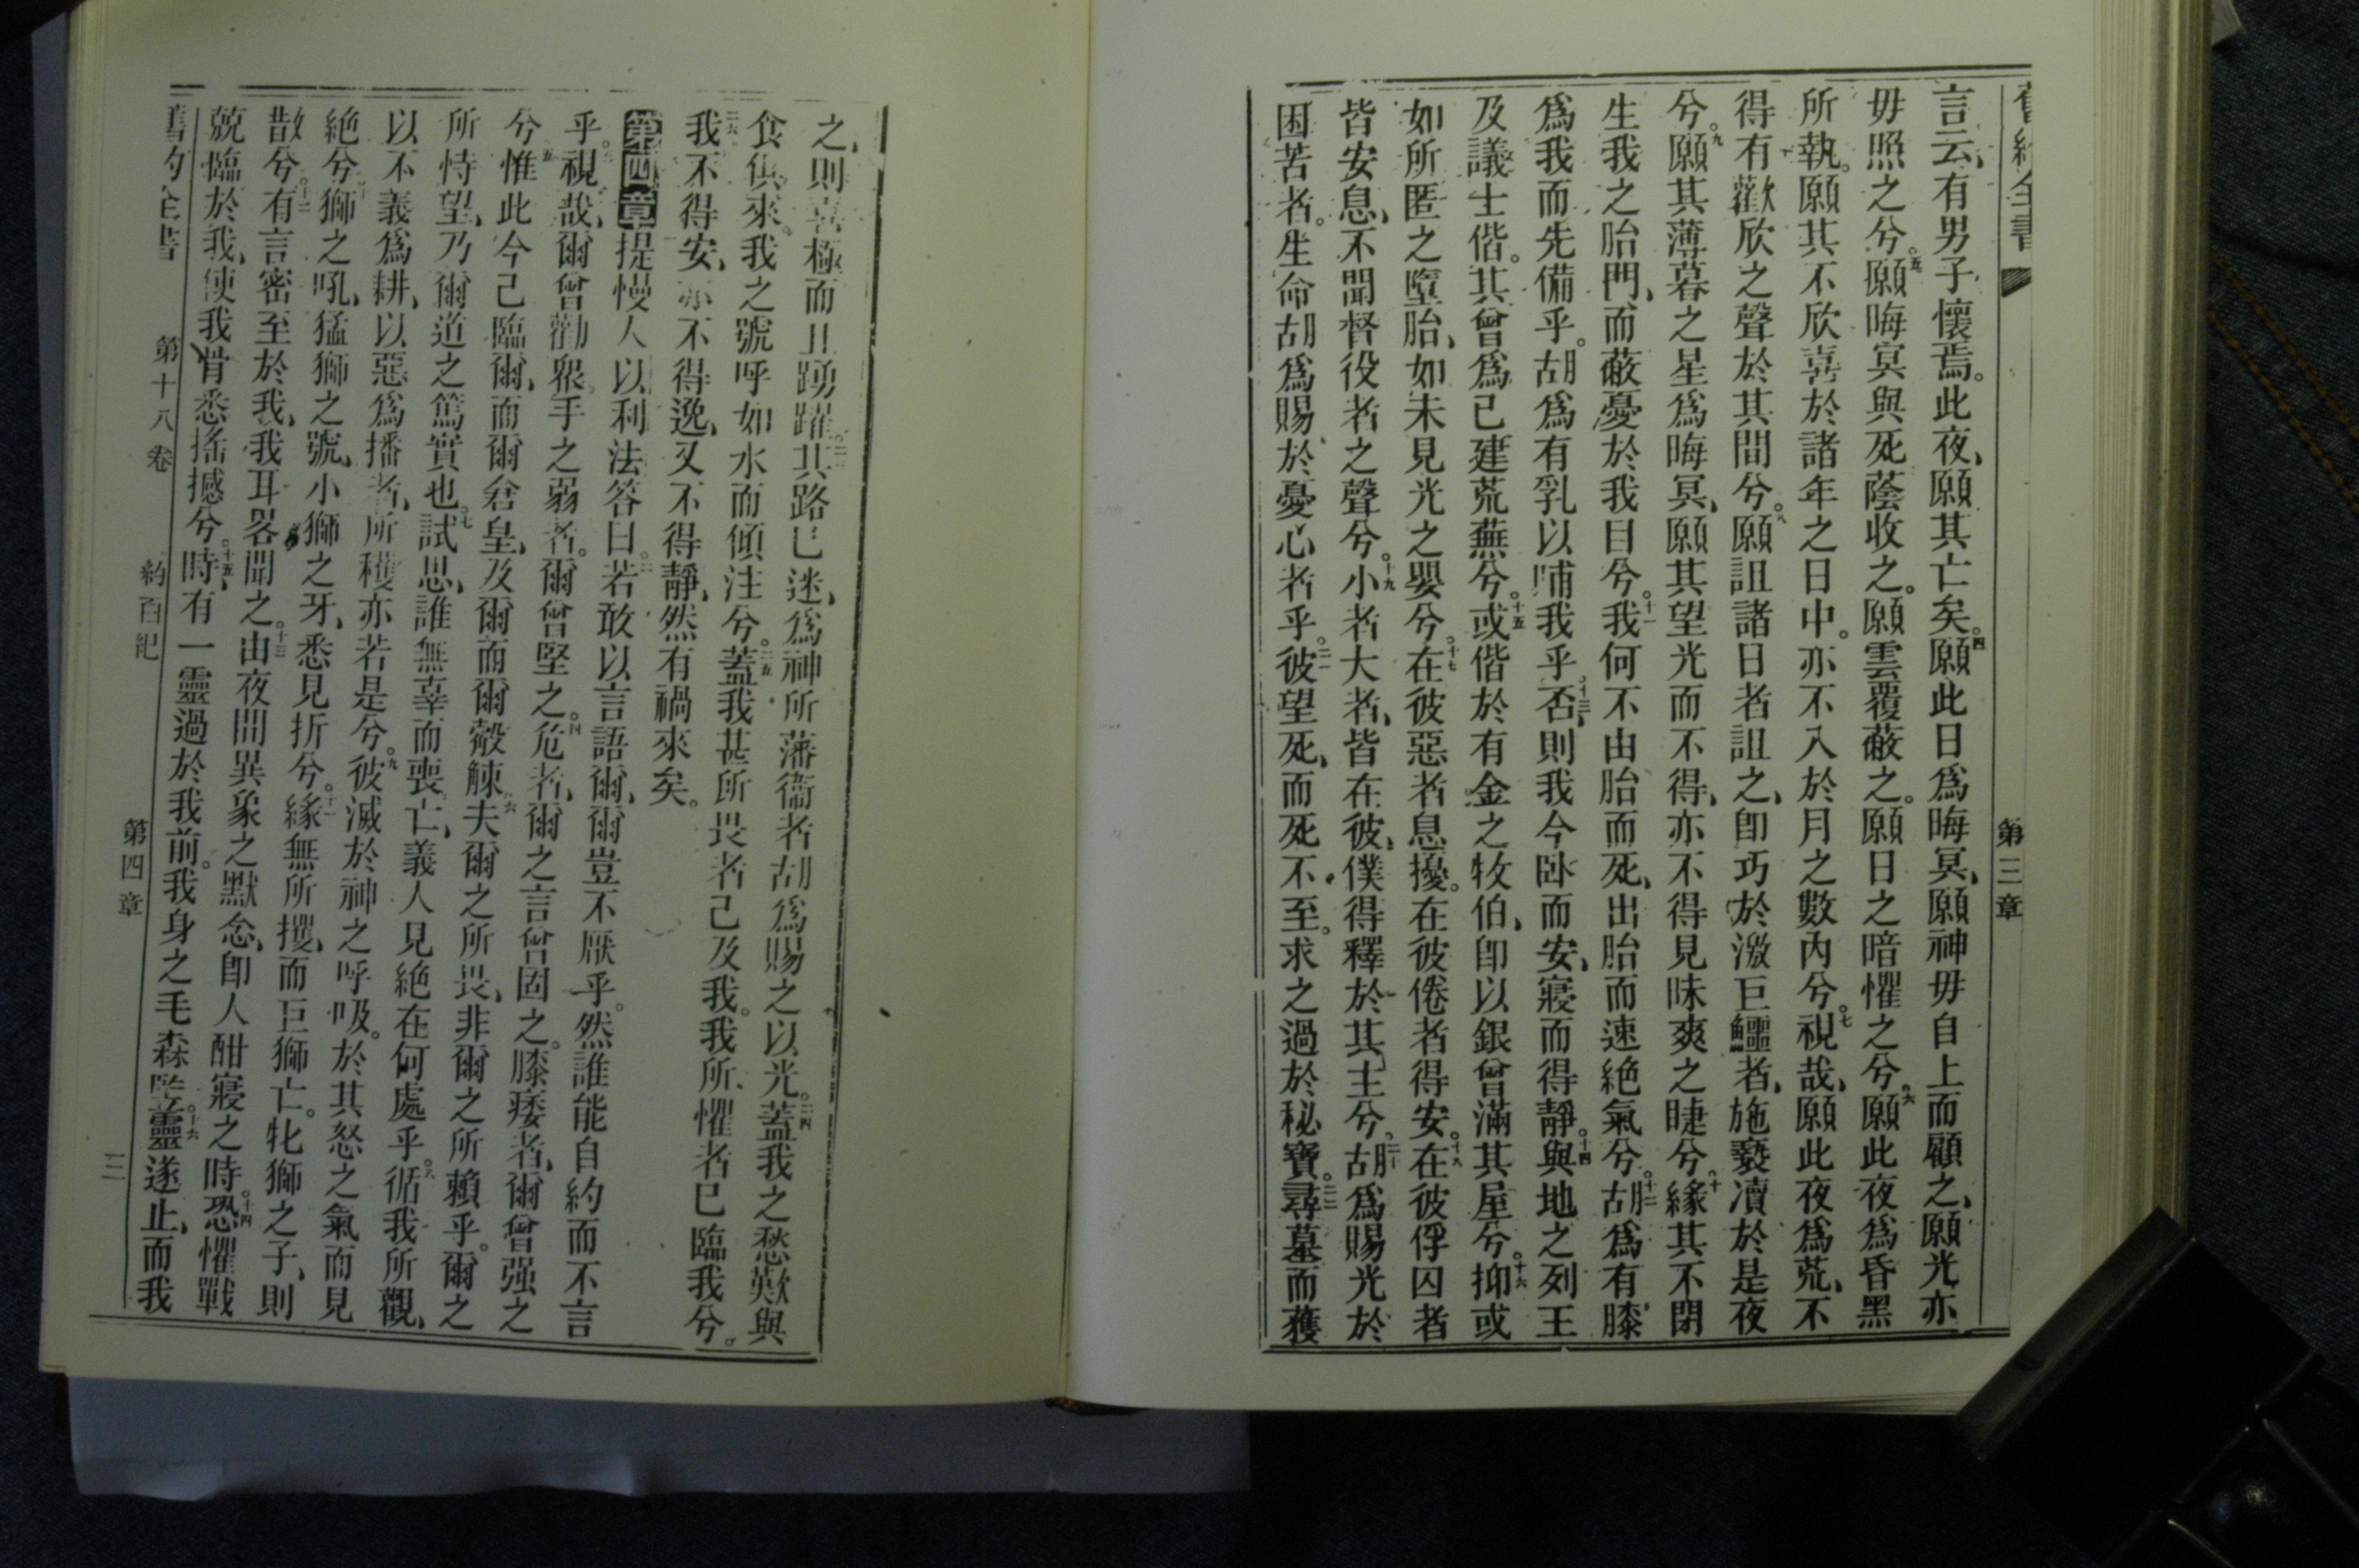 舊約全書
第三章
言云、有男子懷焉。此夜、願其亡矣。四願此日爲晦冥、願神毋自上而顧之、願光亦
毋照之兮。五願晦冥與死蔭收之。願雲覆蔽之。願日之暗懼之兮。六願此夜爲昏黑
所執。願其不欣喜於諸年之日中。亦不入於月之數內兮。七視哉、願此夜爲荒、不
得有歡欣之聲於其間兮。八願詛諸日者詛之、卽巧於激巨鱷者、施褻凟於是夜
兮。九願其薄暮之星爲晦冥、願其望光而不得、亦不得見昧爽之睫兮、十緣其不閉
生我之胎門、而蔽憂於我目兮。十一我何不由胎而死、出胎而速絕氣兮。十二胡爲有膝
爲我而先備乎。胡爲有乳以哺我乎。十三否、則我今臥而安、寢而得靜。十四與地之列王
及議士偕。其曾爲己建荒蕪兮。十五或偕於有金之牧伯、卽以銀曾滿其屋兮。十六抑或
如所匿之墮胎、如未見光之嬰兮。十七在彼惡者息擾。在彼倦者得安。十八在彼俘囚者
皆安息、不聞督役者之聲兮。十九小者大者、皆在彼、僕得釋於其主兮。二十胡爲賜光於
困苦者。生命胡爲賜於憂心者乎。二一彼望死、而死不至。求之過於秘寶。二二尋墓而獲
之、則喜極而且踴躍。二三其路已迷、爲神所藩衞者胡爲賜之以光。二四蓋我之愁歎與
食俱來。我之號呼如水而傾注兮。二五蓋我甚所畏者己及我。我所懼者已臨我兮。
二六我不得安、亦不得逸、又不得靜、然有禍來矣。
第四章提慢人以利法答曰。二若敢以言語爾、爾豈不厭乎。然誰能自約而不言
乎。三視哉、爾曾勸衆。手之弱者。爾曾堅之。四危者、爾之言曾固之。膝痿者、爾曾强之
兮五惟此今己臨爾、而爾倉皇、及爾而爾觳觫、六夫爾之所畏、非爾之所賴乎。爾之
所恃望、乃爾道之篤實也。七試思、誰無辜而喪亡、義人見絕在何處乎。八循我所觀、
以不義爲耕、以惡爲播者、所穫亦若是兮。九彼滅於神之呼吸。於其怒之氣而見
絕兮。十獅之吼、猛獅之號、小獅之牙、悉見折兮。十一緣無所攫、而巨獅亡。牝獅之子、則
散兮。十二有言密至於我、我耳畧聞之。十三由夜間異象之默念、卽人酣寢之時。十四恐懼戰
兢臨於我、使我骨悉搖撼兮。十五時、有一靈過於我前。我身之毛森竪。十六靈遂止、而我
舊約全書
第十八卷
約百紀
第四章
三